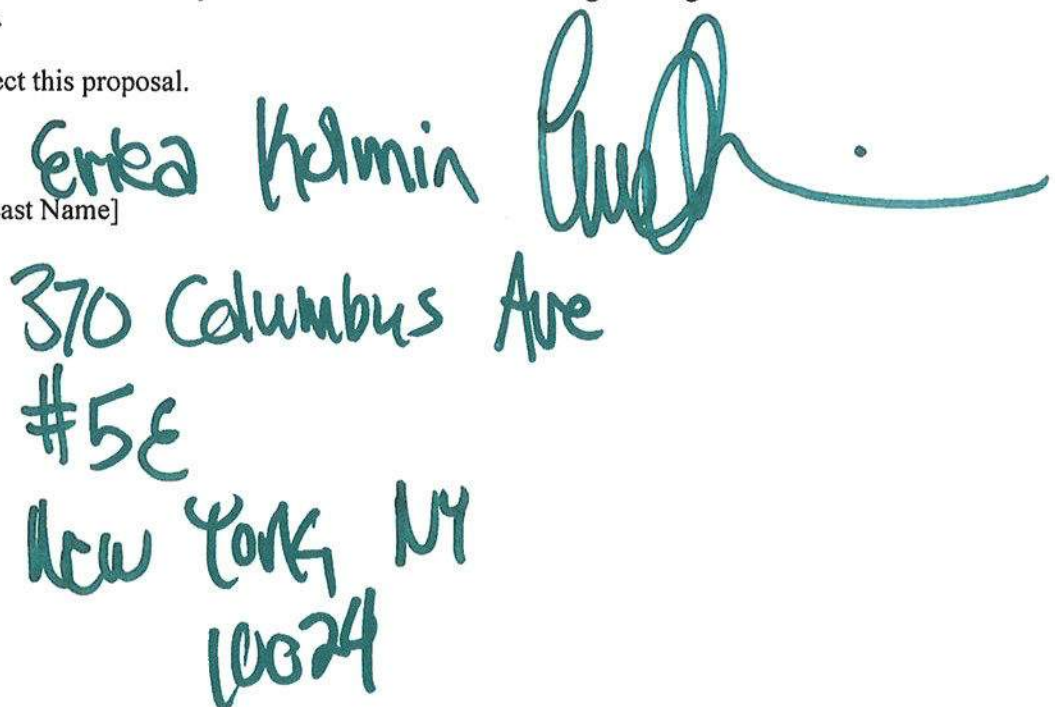 ect this proposal.
Erica Kolmin
ast Name]
370 Columbus Ave
#5E
New York, NY
10024